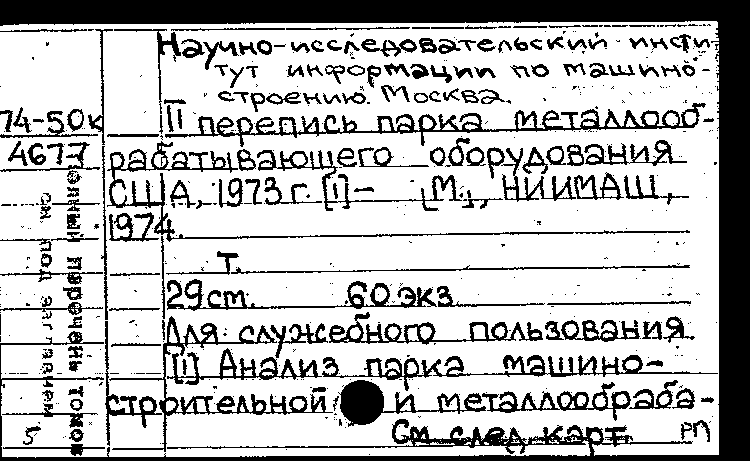 Научно-исследовательский инсти-
тут информации по машино-
строению. Москва.
74-50к
4677
II перепись парка металлооб-
рабатывающего оборудования
США, 1973 г. [1]- [М.], НИИМАШ,
1974.
т.
29 см. 60 экз
Для служебного пользования.
[1] Анализ парка машино-
строительной и металлообраба-
См след. карт.
РП
5
Полный перечень томов
см. под заглавием